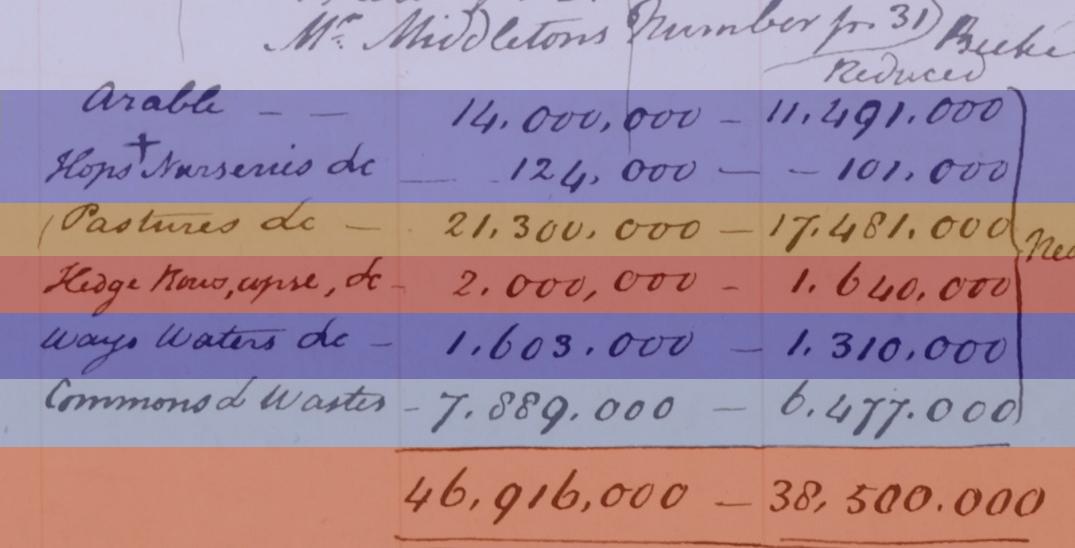 Mr. Middletons Number pr. 31) Beeke
Reduced
Arable - - 14.000,000 - 11.491.000
Hops + Nurseries &c - 124,000 - - 101.000
Pastures &c - 21.300.000 - 17.481.000
Hedge Rows, &c - 2.000,000 - 1.640.000
Ways Waters &c - 1.603.000 - 1.310.000
Commons & Wastes - 7.889.000 - 6.477.000
46,916,000 - 38,500.000